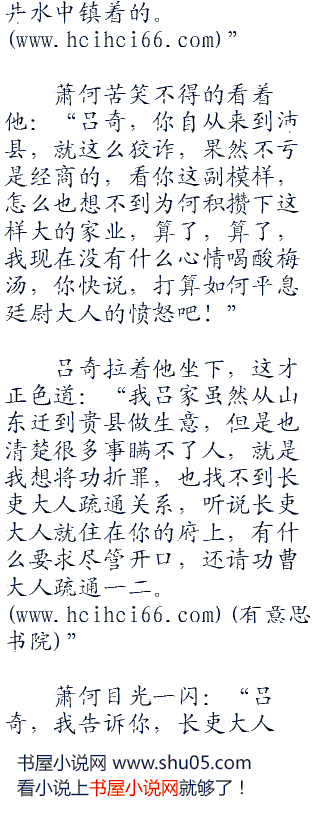 井水中镇着的。
(www.hcihci66.com)”
萧何苦笑不得的看着
他：“吕奇，你自从来到沛
县，就这么狡诈，果然不亏
是经商的，看你这副模样，
怎么也想不到为何积攒下这
样大的家业，算了，算了，
我现在没有什么心情喝酸梅
汤，你快说，打算如何平息
廷尉大人的愤怒吧！”
吕奇拉着他坐下，这才
正色道：“我吕家虽然从山
东迁到贵县做生意，但是也
清楚很多事瞒不了人，就是
我想将功折罪，也找不到长
吏大人疏通关系，听说长吏
大人就住在你的府上，有什
么要求尽管开口，还请功曹
大人疏通一二。
(www.hcihci66.com)(有意思
书院)”
萧何目光一闪：“吕
奇，我告诉你，长吏大人
书屋小说网 www.shu05.com
看小说上书屋小说网就够了！